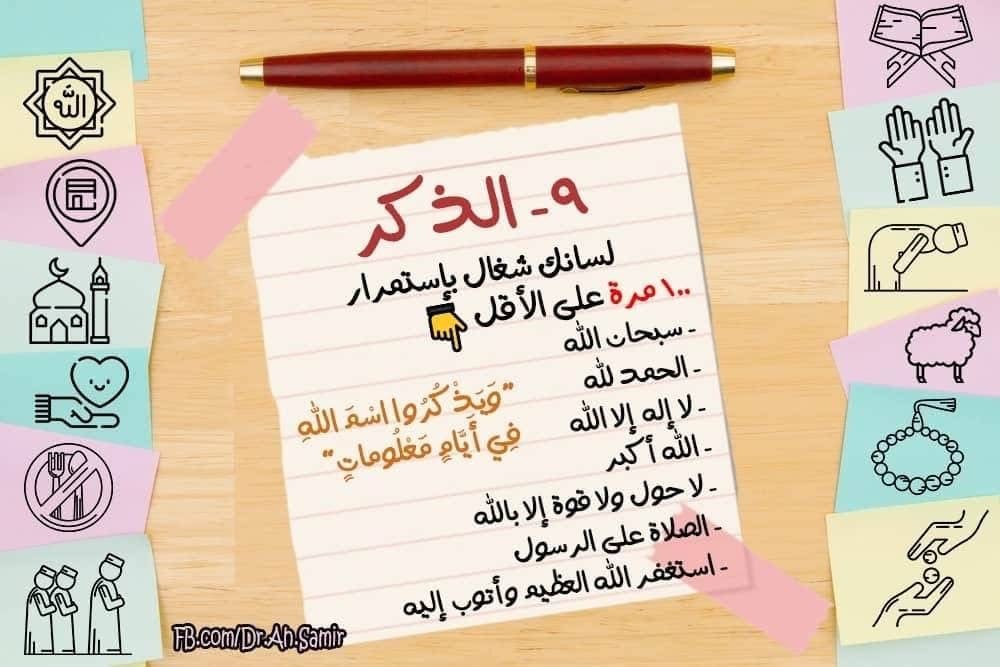 ٩- الذكر
لسانك شغال بإستمرار
١٠٠ مرة على الأقل
- سبحان الله
- الحمد لله
- لا إله إلا الله
- الله أكبر
- لا حول ولا قوة إلا بالله
- الصلاة على الرسول
- استغفر الله العظيم وأتوب إليه
"وَيَذْكُرُوا اسْمَ اللهِ
فِي أَيَّامٍ مَعْلُومَاتٍ"
الله
FB.com/Dr.Ah.Samir